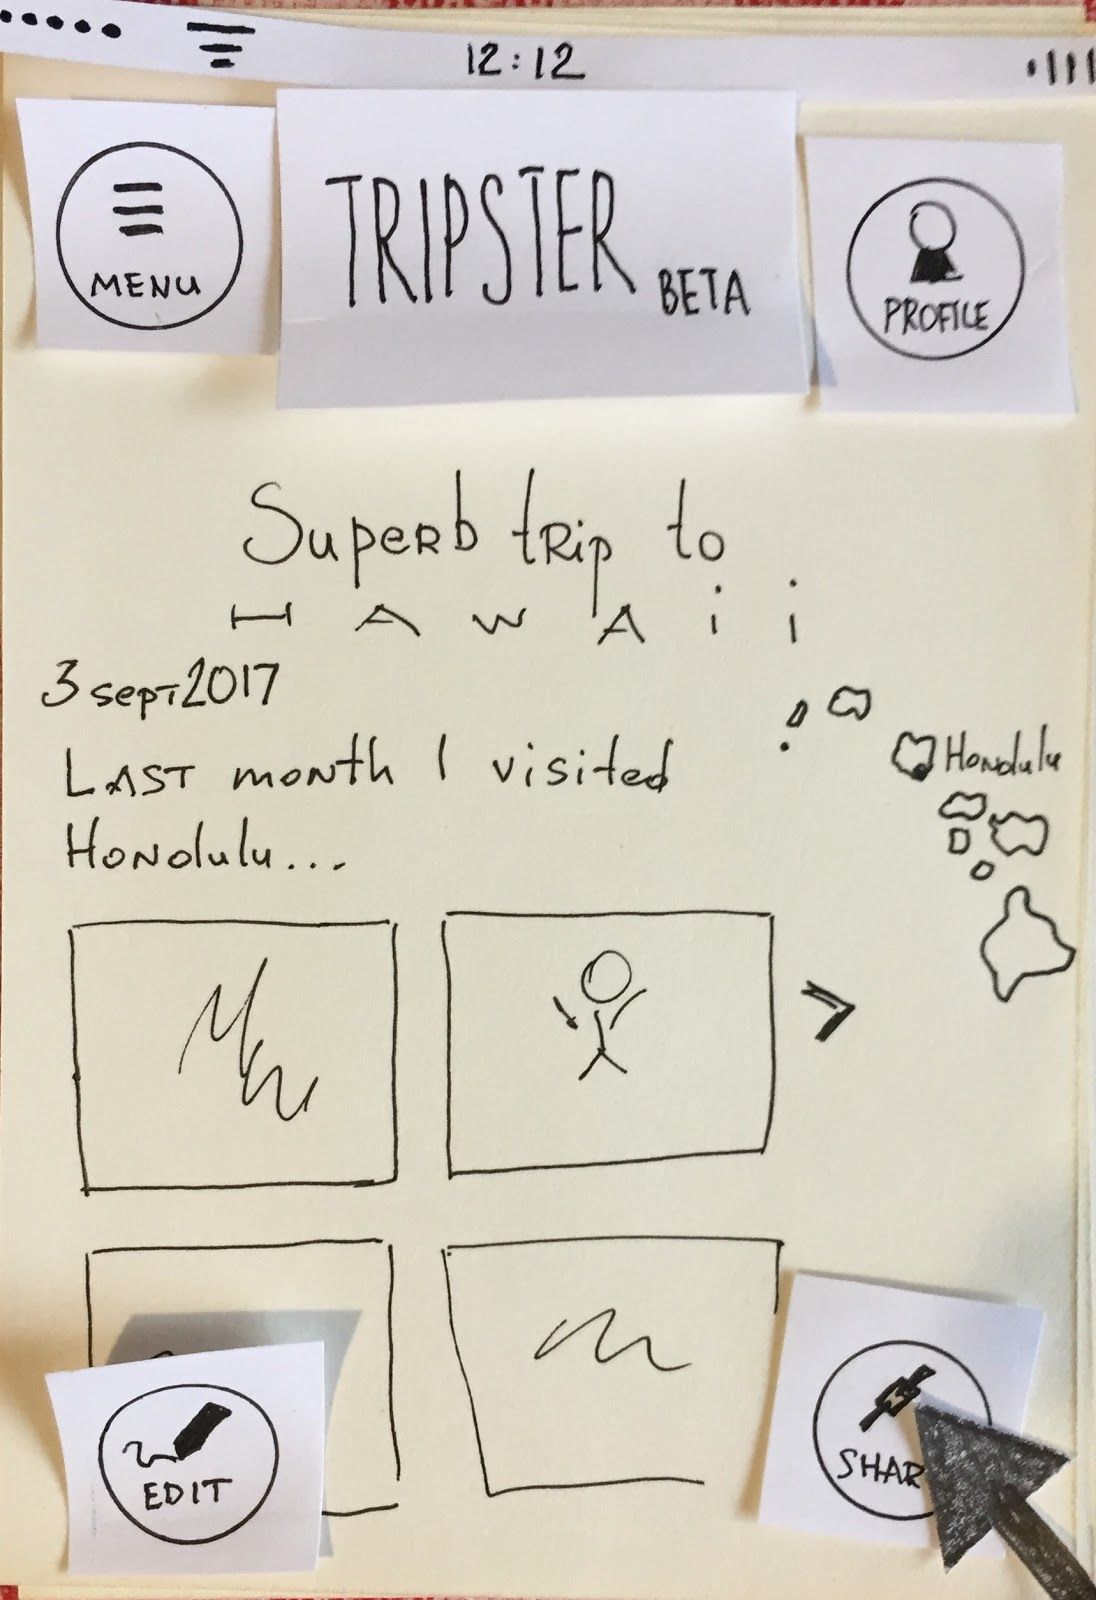 12:12
MENU
TRIPSTER BETA
PROFILE
Superb trip to
HAWAii
3 sept 2017
LAST month I visited
Honolulu...
Honolulu
EDIT
SHAR